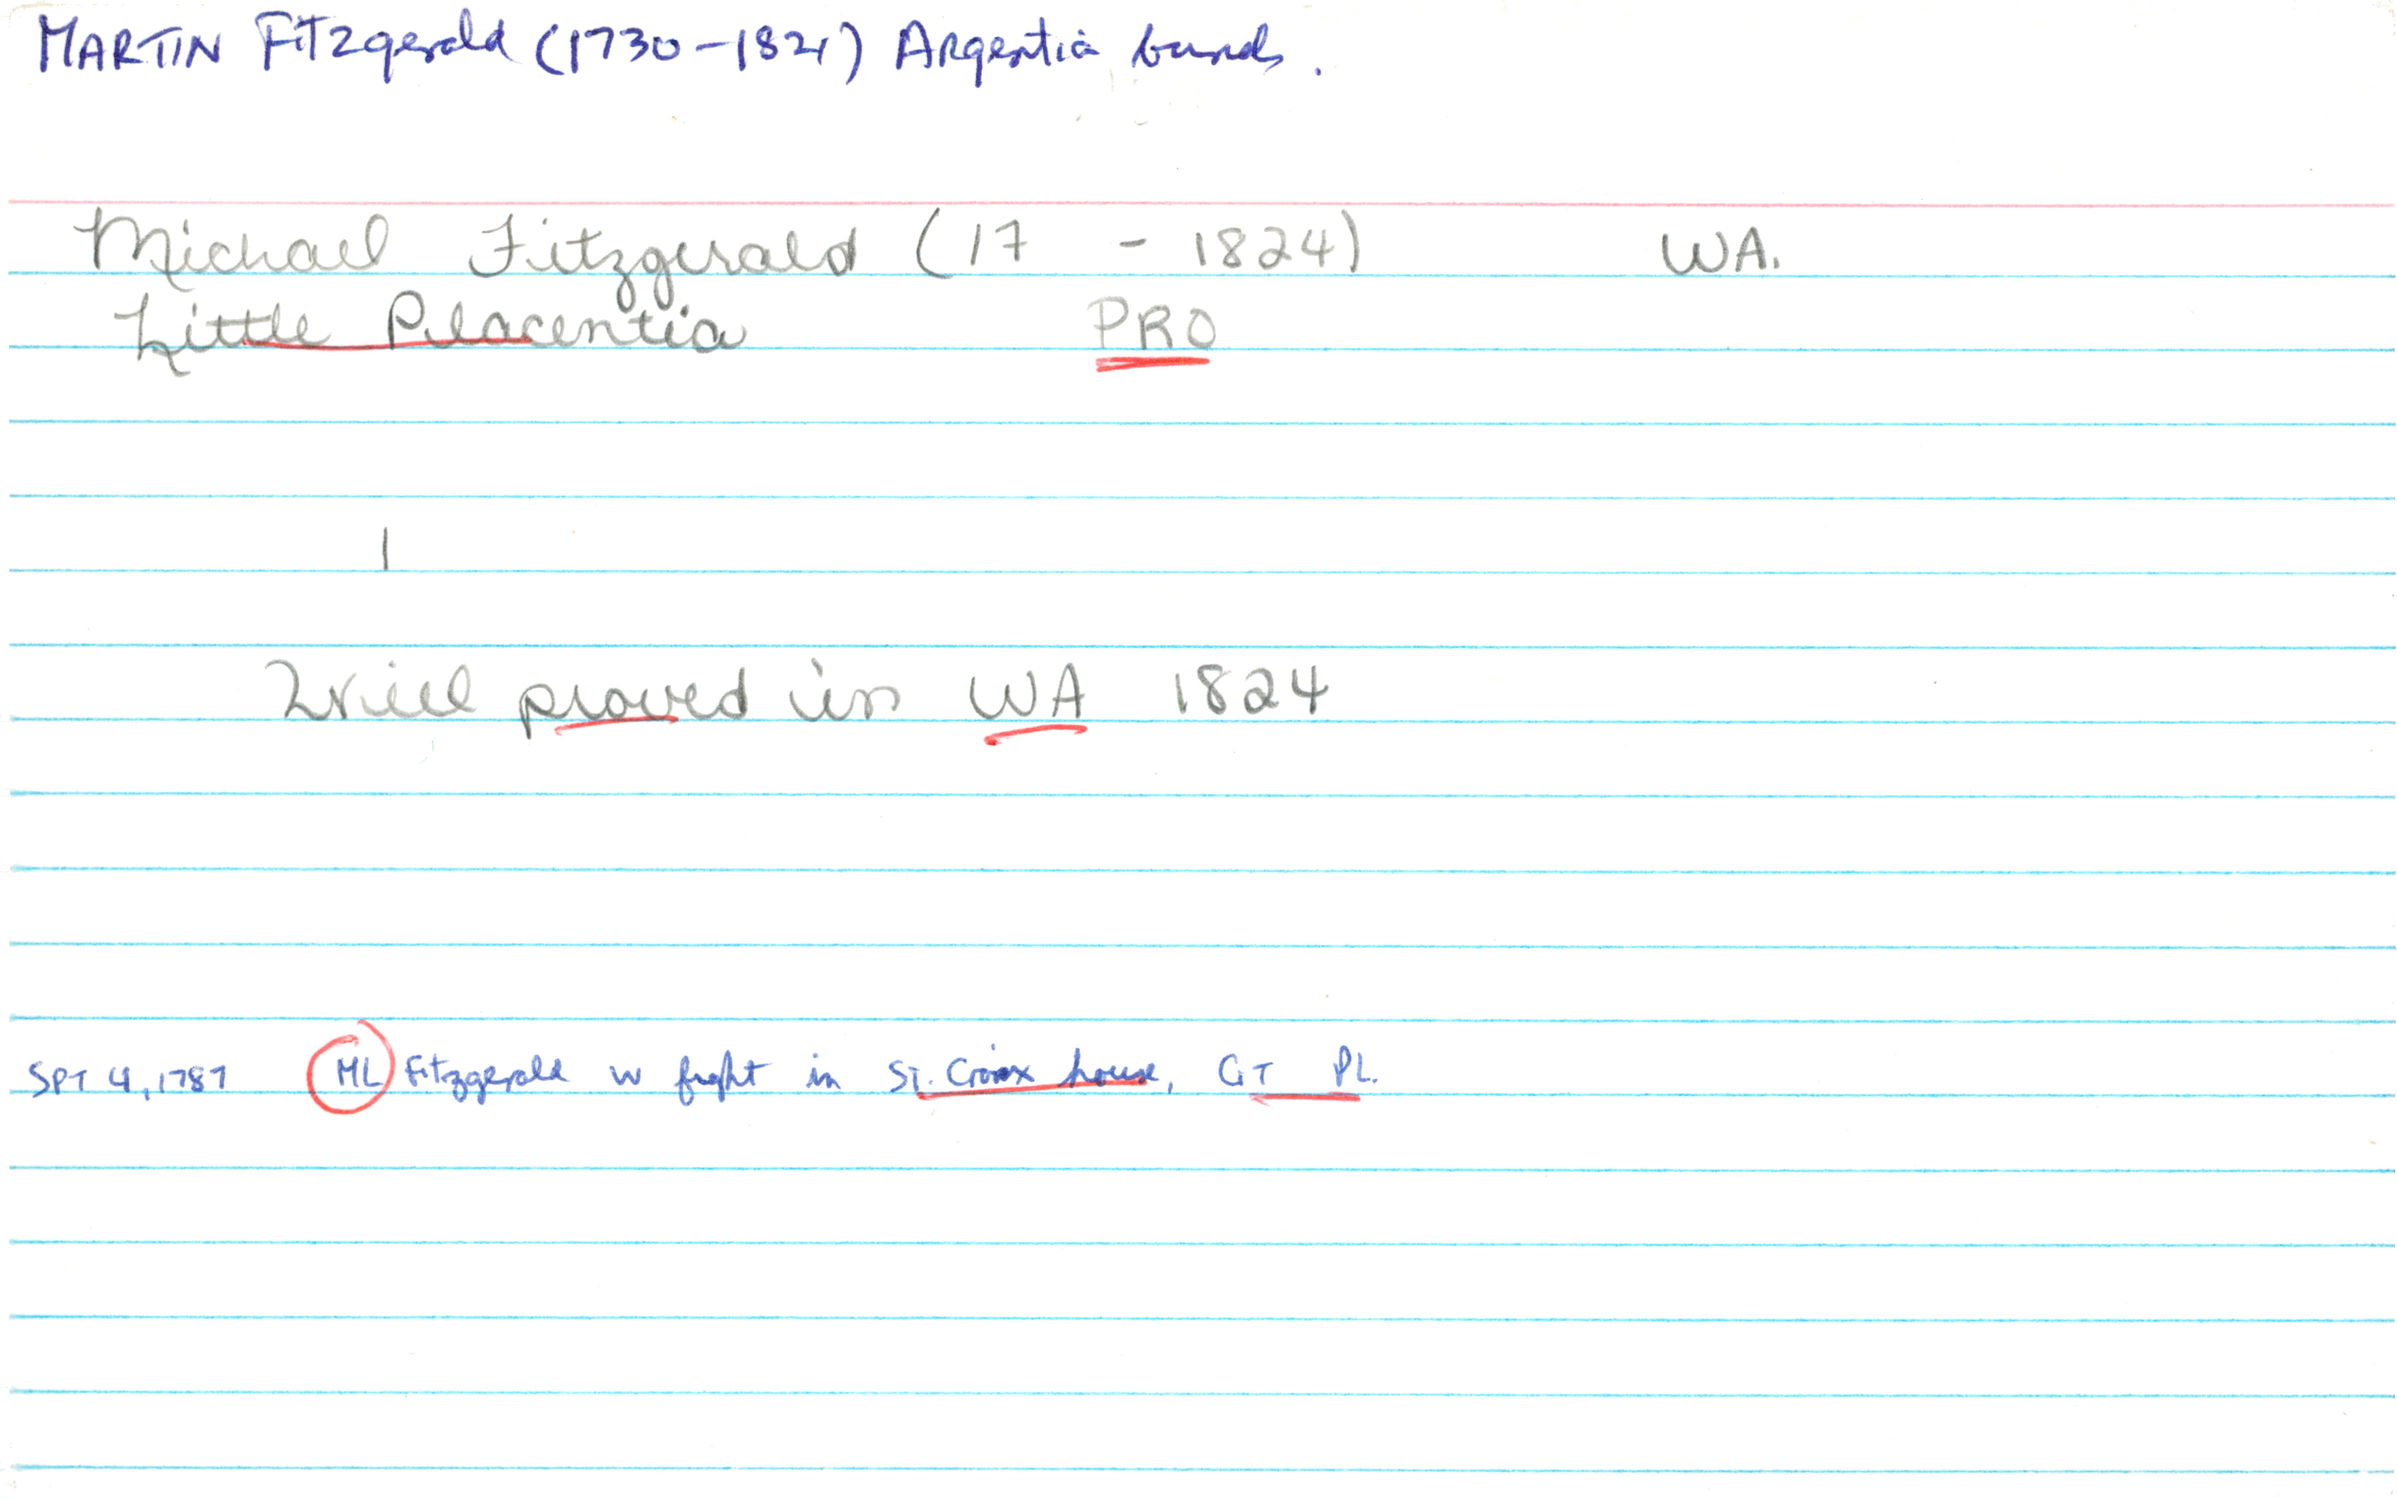 MARTIN Fitzgerald (1730-1821) Argentia
Michael Fitzgerald (17 - 1824) WA.
Little Placentia PRO
Will proved in WA 1824
SPT 4, 1787 ML Fitzgerald w fight in St. Croix house, GT PL.